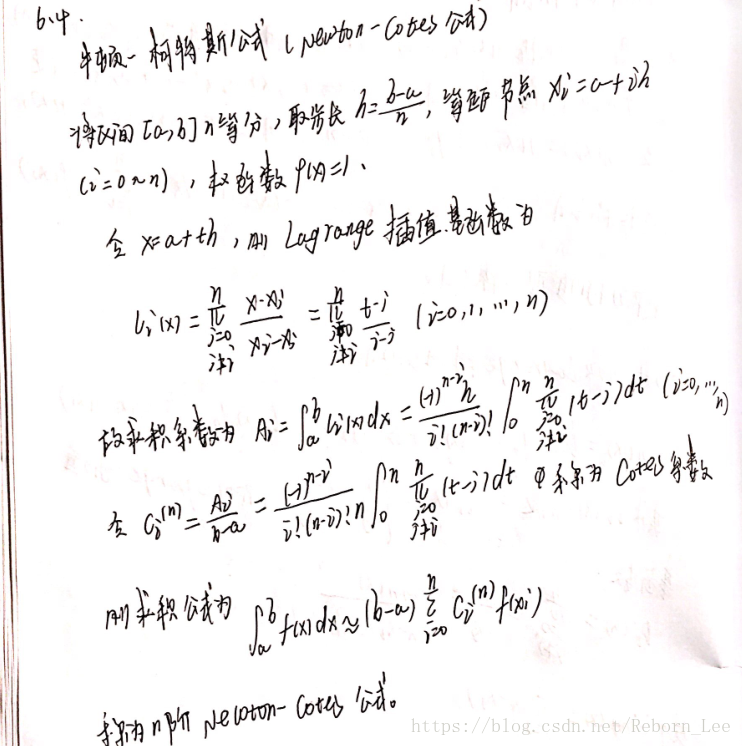 6.4.
牛顿-柯特斯公式 (Newton-Cotes 公式)
将区间[a,b] n等分, 取步长 h=\frac{b-a}{n}, 等距节点 x_i=a+ih
(i=0~n), 权函数 ρ(x)=1.
令 x=a+th, 则 Lagrange 插值基函数为
l_i(x)=\prod_{j=0, j≠i}^{n} \frac{x-x_j}{x_i-x_j} = \prod_{j=0, j≠i}^{n} \frac{t-j}{i-j} (i=0,1,…,n)
故求积系数为 A_i=\int_a^b l_i(x)dx=\frac{(-1)^{n-i}h}{i!(n-i)!} \int_0^n \prod_{j=0, j≠i}^{n} (t-j)dt (i=0,…,n)
令 C_i^{(n)}=\frac{A_i}{b-a}=\frac{(-1)^{n-i}}{i!(n-i)!n} \int_0^n \prod_{j=0, j≠i}^{n} (t-j)dt 称为 Cotes 系数
则求积公式为 \int_a^b f(x)dx≈(b-a) \sum_{i=0}^{n} C_i^{(n)} f(x_i)
称为n阶 Newton-Cotes 公式。
https://blog.csdn.net/Reborn_Lee